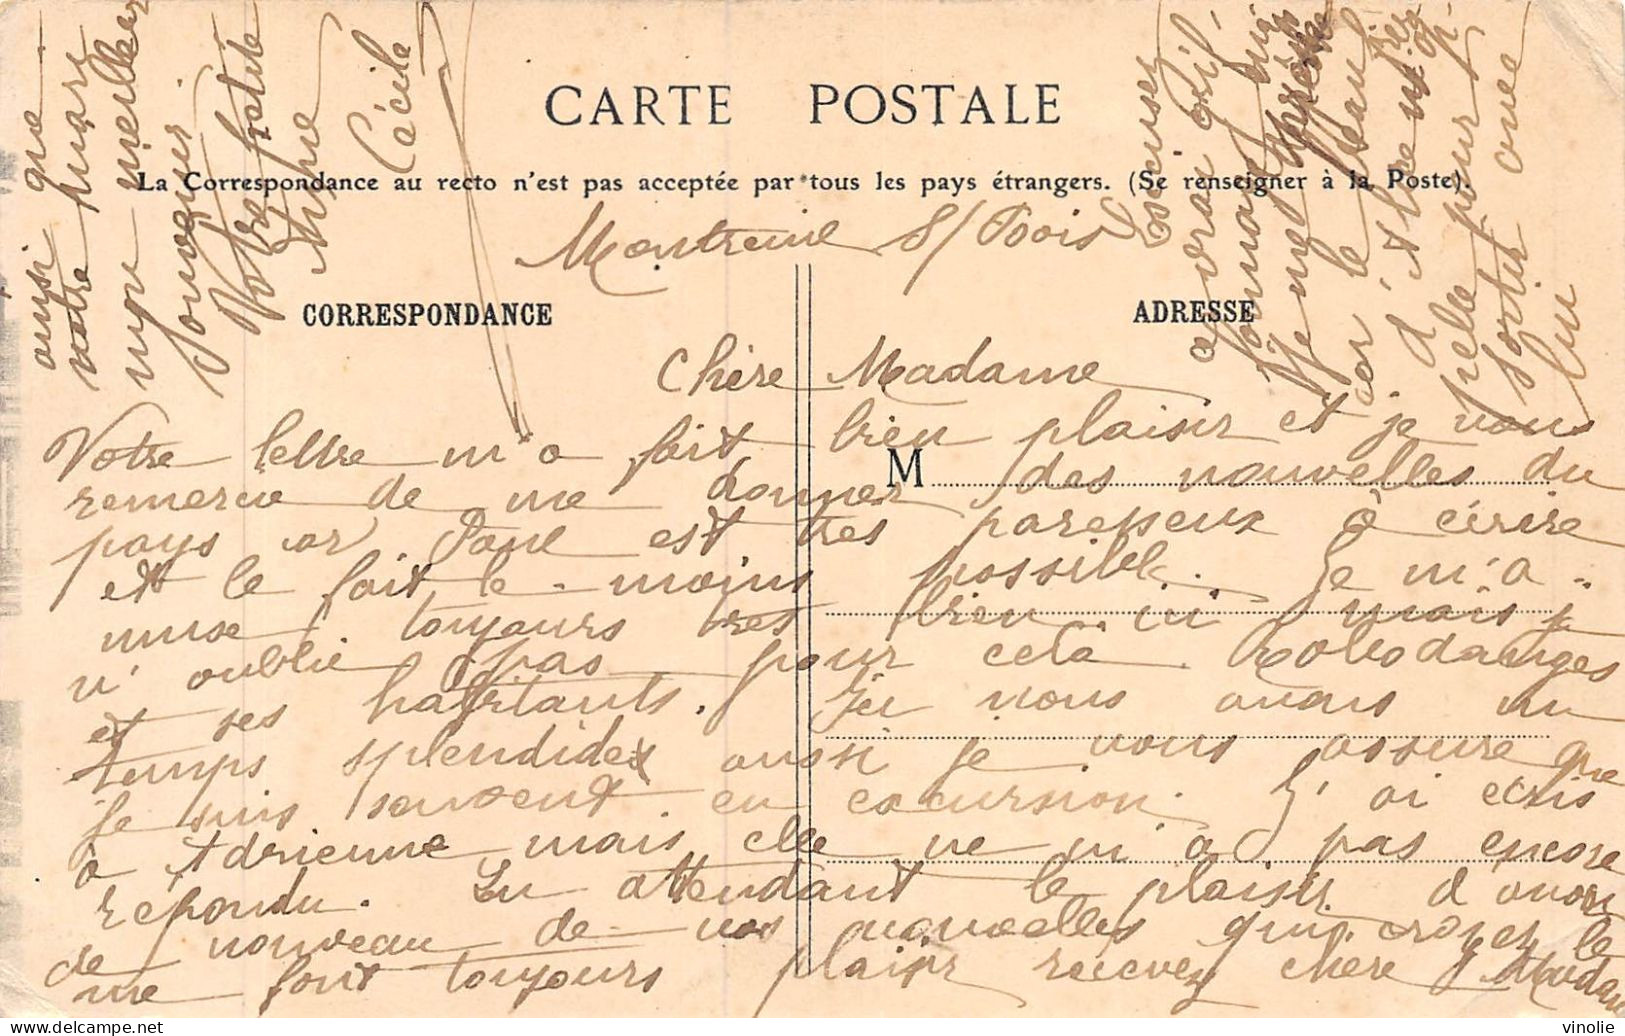 CARTE POSTALE
La Correspondance au recto n'est pas acceptée par tous les pays étrangers. (Se renseigner à la Poste).
Montreuil S/Bois
CORRESPONDANCE
ADRESSE
Chère Madame
M
Votre lettre m'a fait bien plaisir et je vous
remercie de me donner des nouvelles du
pays car Paul est très paresseux à écrire
et le fait le moins possible. Je m'a-
muse toujours très bien ici mais je
n'oublie pas pour cela
et ses habitants. Ici nous avons un
temps splendide aussi je vous assure que
je suis souvent en excursion. J'ai écris
à Adrienne mais elle ne m'a pas encore
répondu. En attendant le plaisir d'avoir
de nouveau de vos nouvelles qui croyez le
me font toujours plaisir recevez chère Madame
ainsi que
votre mari
mes meilleurs
Votre petite
Cécile
Excuser